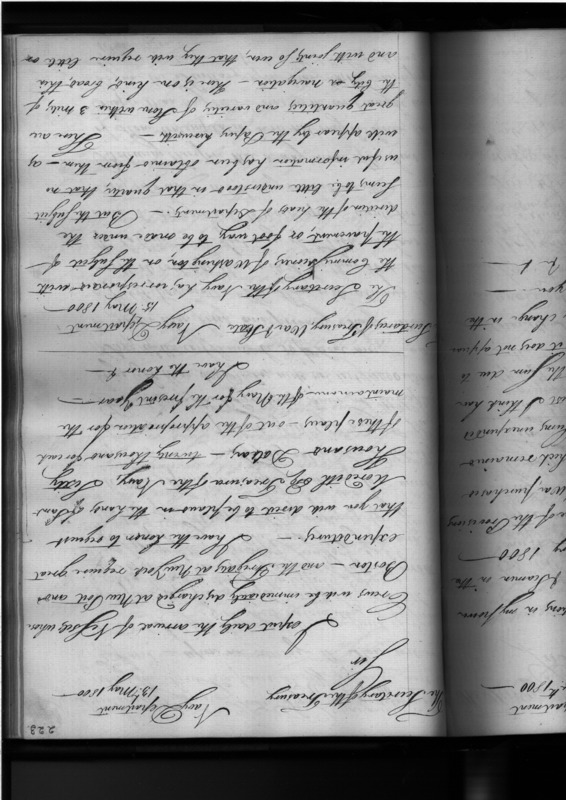 223
Navy Department
13th May 1800
The Secretary of the Treasury
Sir
I expect daily the arrival of Vessels, whose
Crews will be immediately discharged at New Port and
Boston – and the Frigates at New York require great
expenditures, – I have the honor to request
that you will direct to be placed in the hands of Saml
Meredith Esq Treasurer of the Navy Sixty
Thousand Dollars – twenty thousand for each
of these places – out of the appropriation for the
maintainance of the Navy for the present year –
I have the honor &
Secretarys of Treasury, War & State
Navy Department
15 May 1800
The Secretary of the Navy has corresponded with
the Commissioners of Washington on the subject of
the pavement, or foot way, to be made under the
direction of the heads of Departments. – But the subject
seems to be little understood in that quarter, that no
useful information has been obtained from them – as
will appear by the Copies herewith. – There are
great quantities and varieties of Stone within 3 miles of
the City or navigation – There is one kind, broad thin
and with joints so even, that they will require little or
partment
1800
ing in my power
in the
1800
of the Provision
purchase
remains
being unexpended
I think has
the sum due to
it does not appear
change in the
you